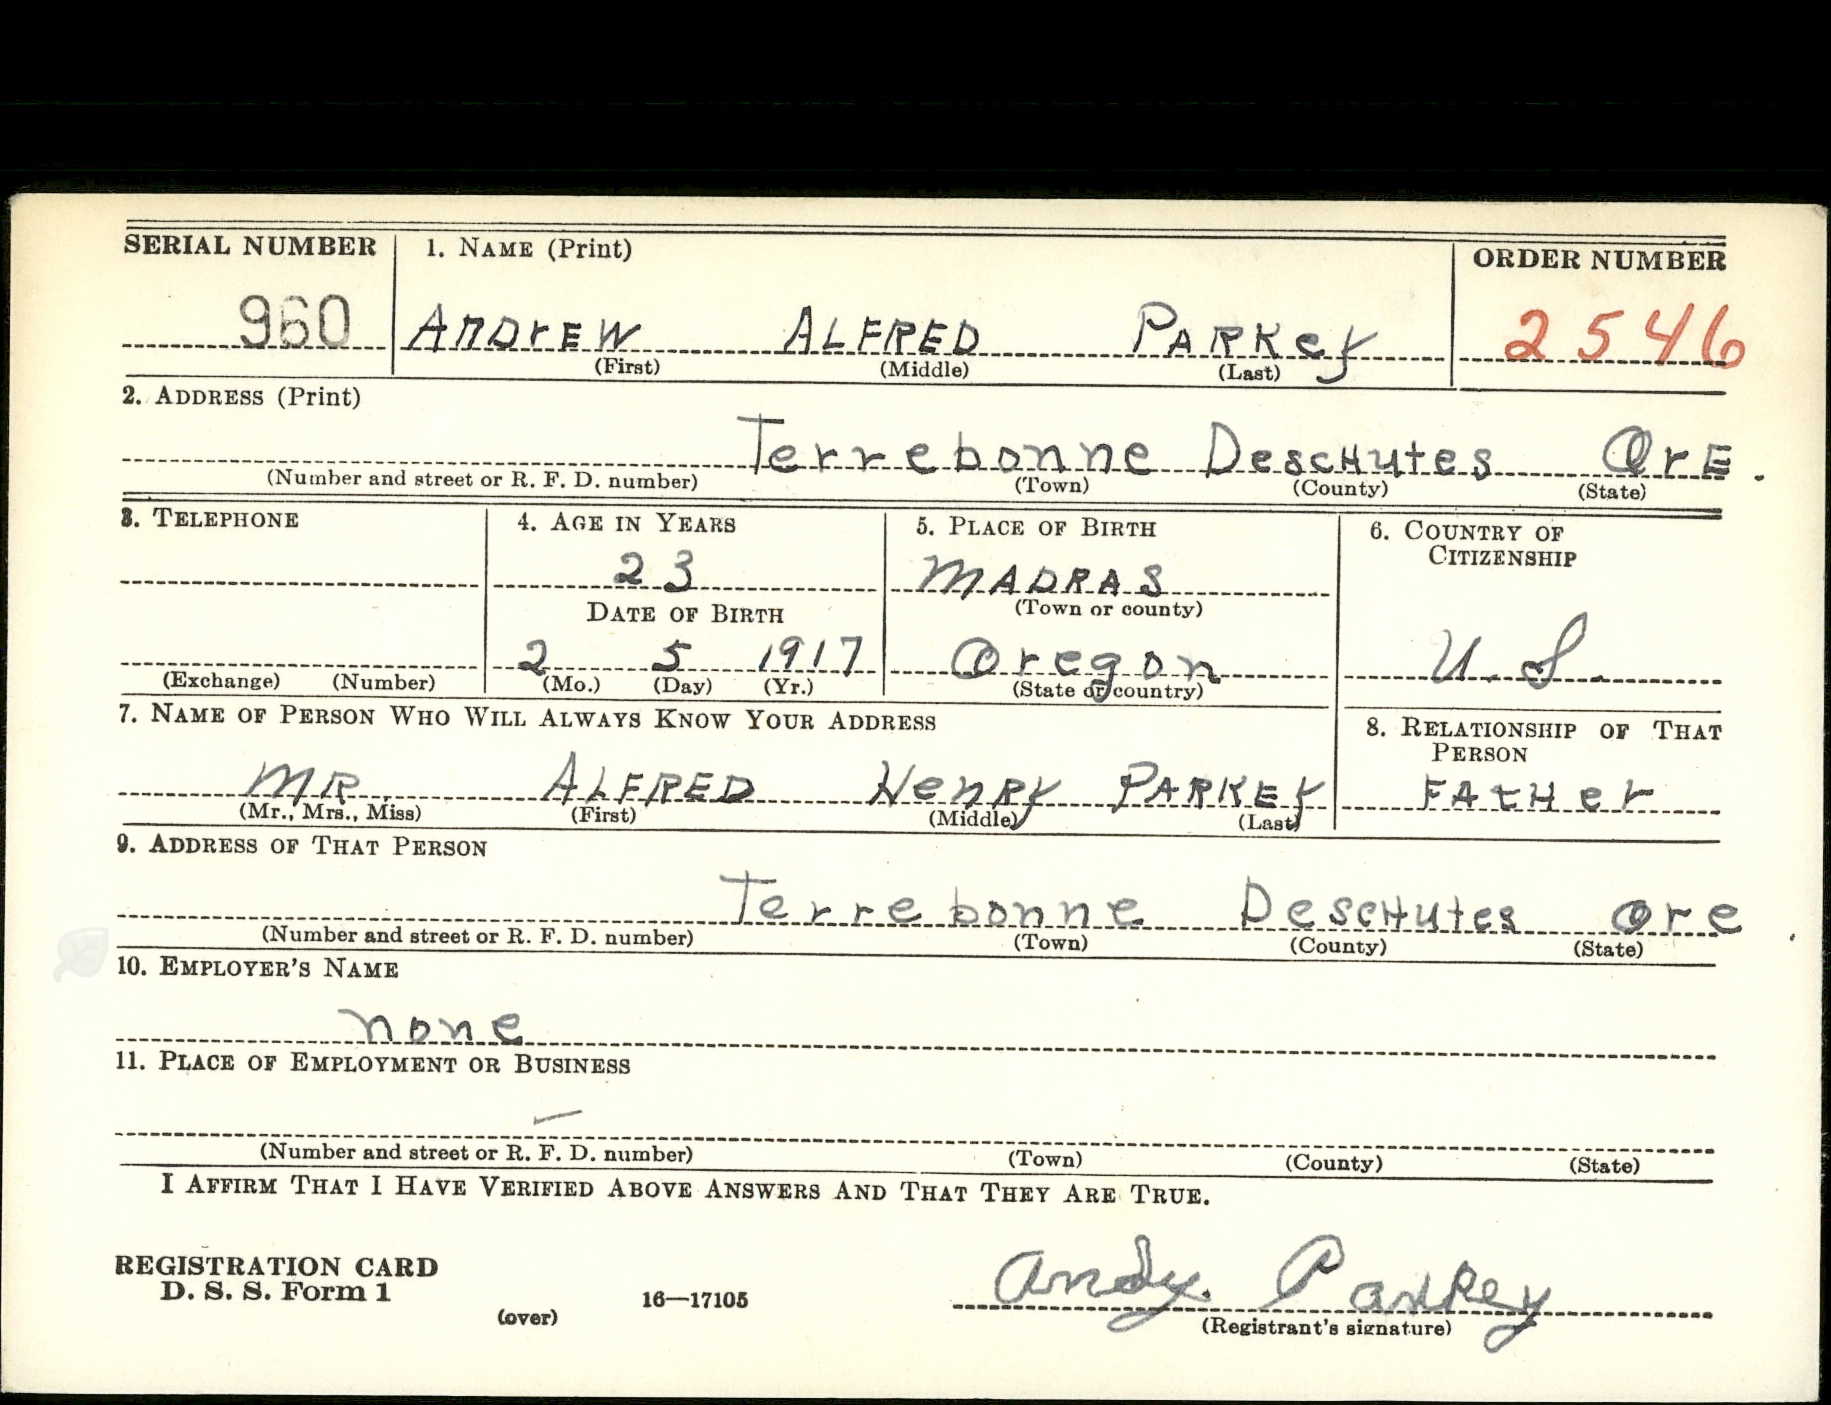 SERIAL NUMBER 1. NAME (Print) ORDER NUMBER
960 ANDrEW ALFRED PARKey 2546
(First) (Middle) (Last)
2. ADDRESS (Print)
Terrebonne DescHutes OrE.
(Number and street or R. F. D. number) (Town) (County) (State)
3. TELEPHONE 4. AGE IN YEARS 5. PLACE OF BIRTH 6. COUNTRY OF CITIZENSHIP
23 MADRAS
DATE OF BIRTH (Town or county)
2 5 1917 Oregon U.S.
(Exchange) (Number) (Mo.) (Day) (Yr.) (State or country)
7. NAME OF PERSON WHO WILL ALWAYS KNOW YOUR ADDRESS 8. RELATIONSHIP OF THAT PERSON
MR. ALFRED HenRy PARKEy FAtHer
(Mr., Mrs., Miss) (First) (Middle) (Last)
9. ADDRESS OF THAT PERSON
Terrebonne DescHutes ore.
(Number and street or R. F. D. number) (Town) (County) (State)
10. EMPLOYER'S NAME
none
11. PLACE OF EMPLOYMENT OR BUSINESS
—
(Number and street or R. F. D. number) (Town) (County) (State)
I AFFIRM THAT I HAVE VERIFIED ABOVE ANSWERS AND THAT THEY ARE TRUE.
REGISTRATION CARD
D. S. S. Form 1
(over) 16—17105 Andy. Parkey
(Registrant's signature)